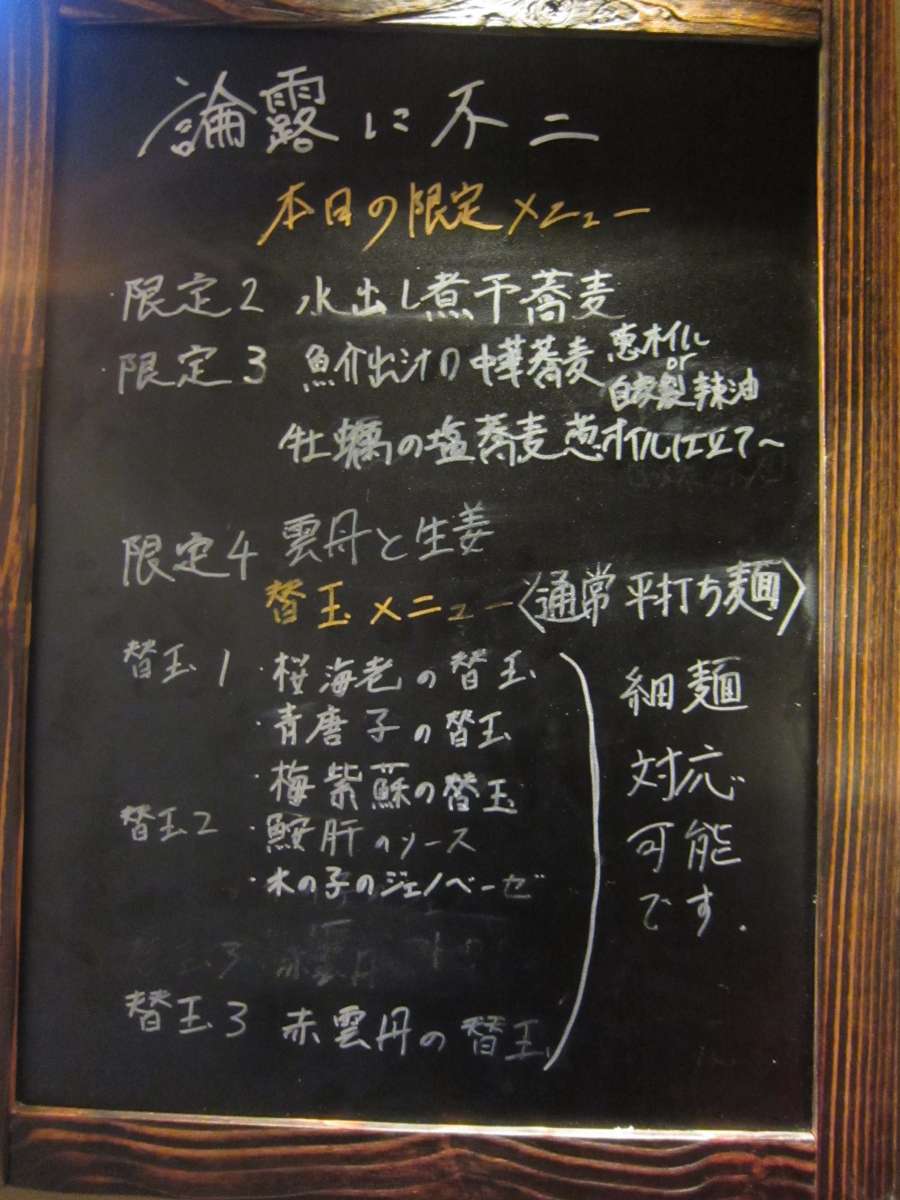 論露に不二
本日の限定メニュー
限定2 水出し煮干蕎麦
限定3 魚介出汁の中華蕎麦 葱オイル or 自家製辣油
牡蠣の塩蕎麦葱オイル仕立て〜
限定4 雲丹と生姜
替玉メニュー〈通常平打ち麺〉
替玉1 ・桜海老の替玉
・青唐子の替玉
・梅紫蘇の替玉
替玉2 ・鮟肝のソース
・木の子のジェノベーゼ
替玉3 赤雲丹の替玉
細麺
対応
可能
です.